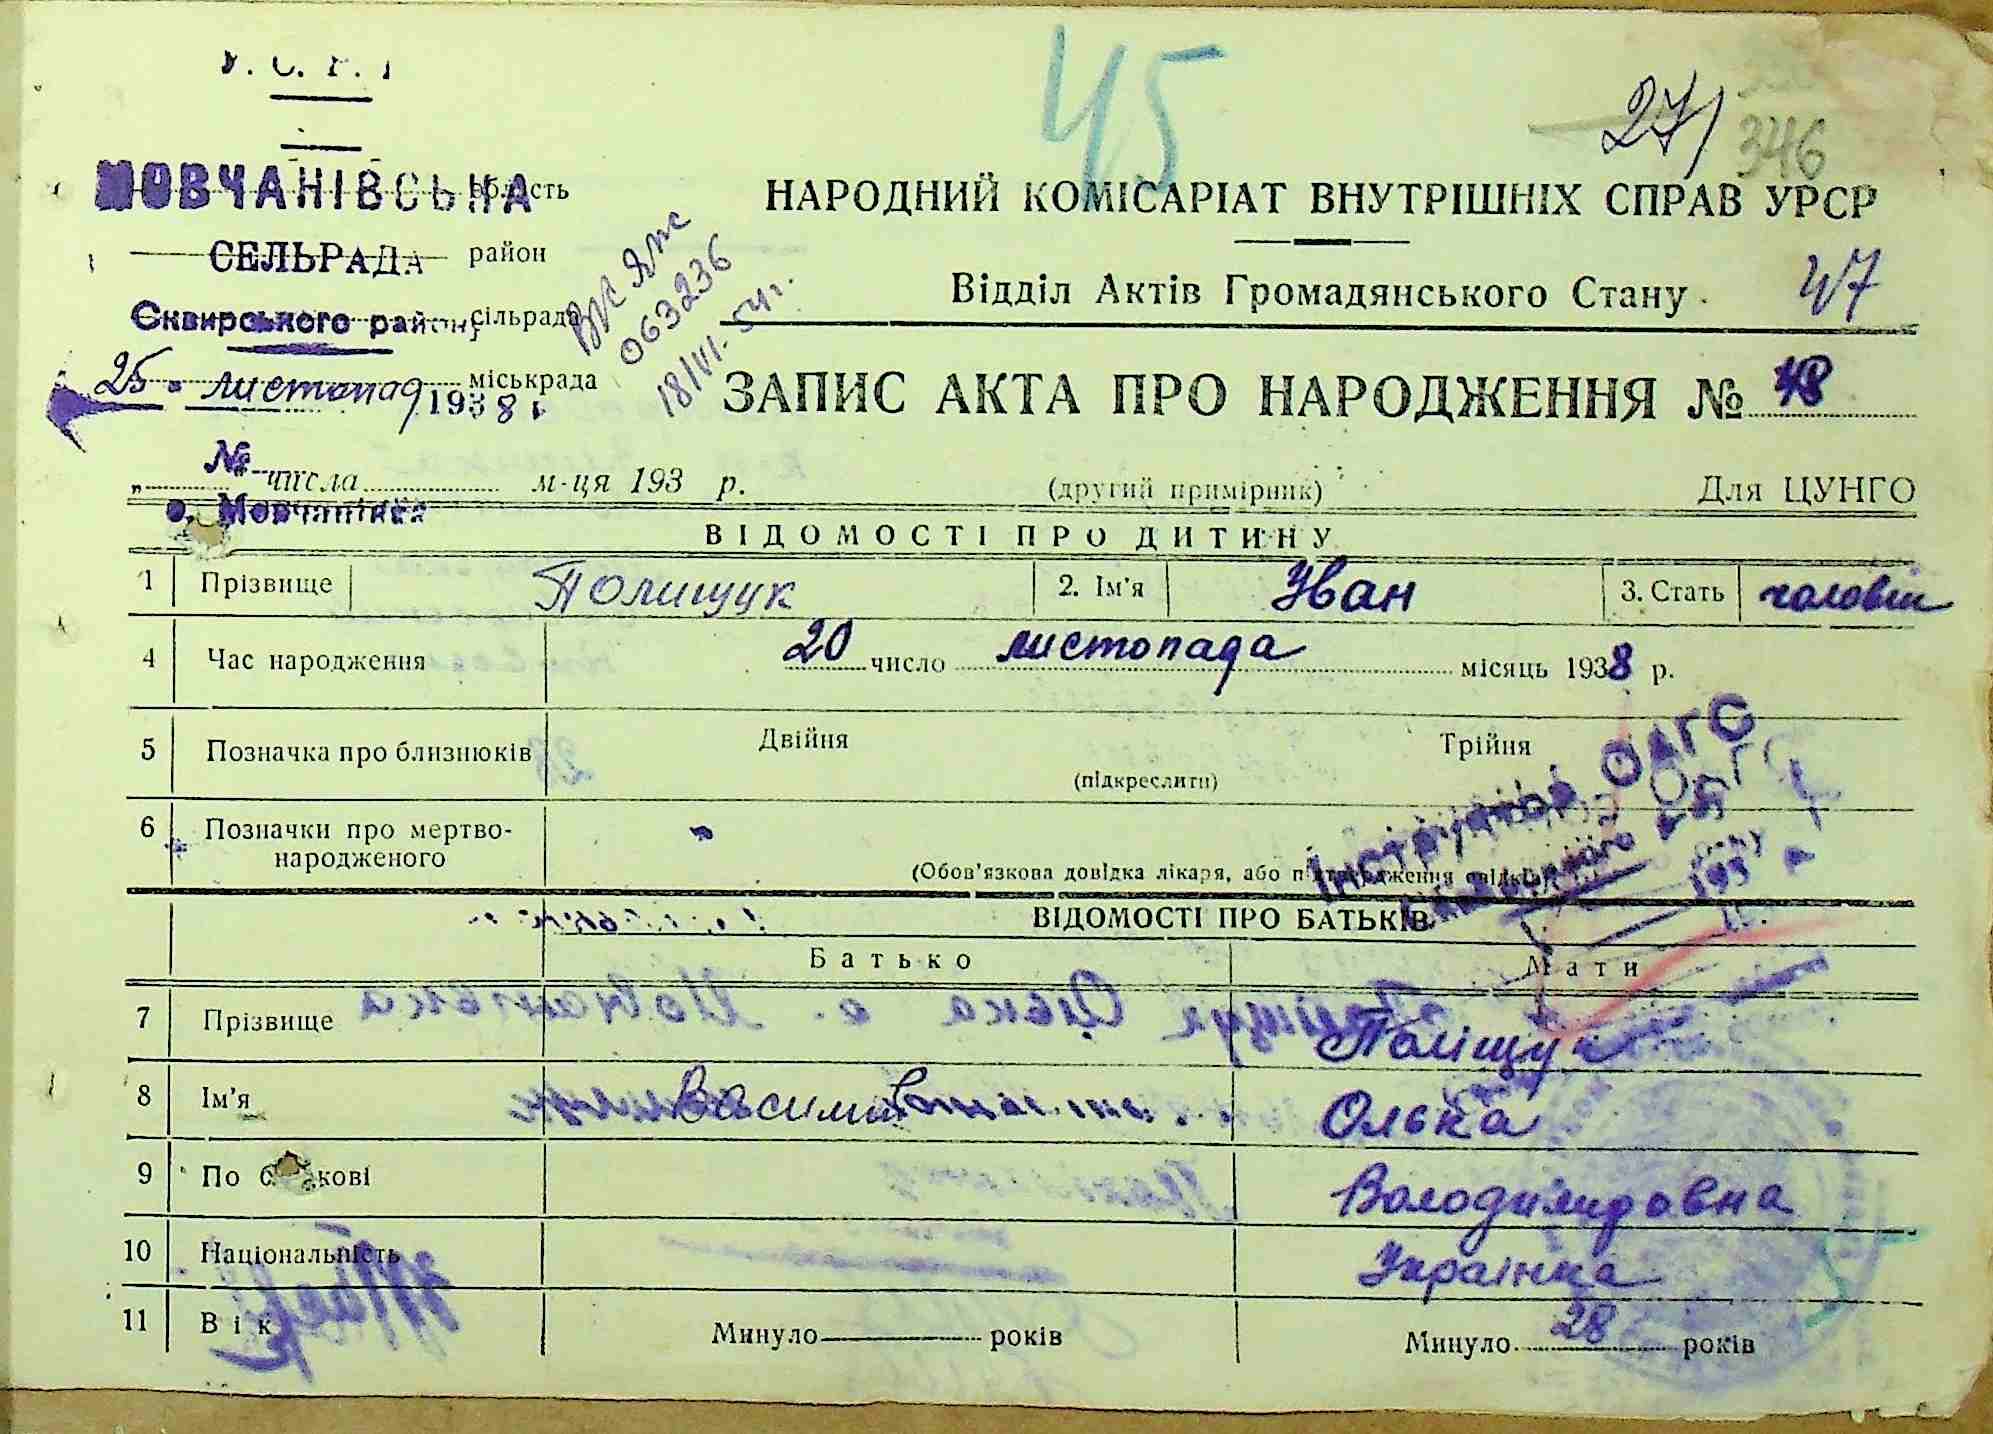 45
27/
346
МОВЧАНІВСЬКА область
СЕЛЬРАДА район
Сквирського району сільрада
25 листопад 1938 міськрада
063236
18/VI. 54 г.
НАРОДНИЙ КОМІСАРІАТ ВНУТРІШНІХ СПРАВ УРСР
Відділ Актів Громадянського Стану
47
ЗАПИС АКТА ПРО НАРОДЖЕННЯ № 48
№
„ " числа м-ця 193 р.
(другий примірник)
Для ЦУНГО
с. Мовчанівка
ВІДОМОСТІ ПРО ДИТИНУ
1 Прізвище Полищук 2. Ім'я Иван 3. Стать чоловіч
4 Час народження 20 число листопада місяць 1938 р.
5 Позначка про близнюків Двійня Трійня
(підкреслити)
6 Позначки про мертво-
народженого
(Обов'язкова довідка лікаря, або підтвердження свідків)
Інструктор ОАГС
193
ВІДОМОСТІ ПРО БАТЬКІВ
Батько Мати
7 Прізвище Поліщук
8 Ім'я Василь Олька
9 По батькові Володимировна
10 Національність Українка
11 Вік Минуло років Минуло 28 років